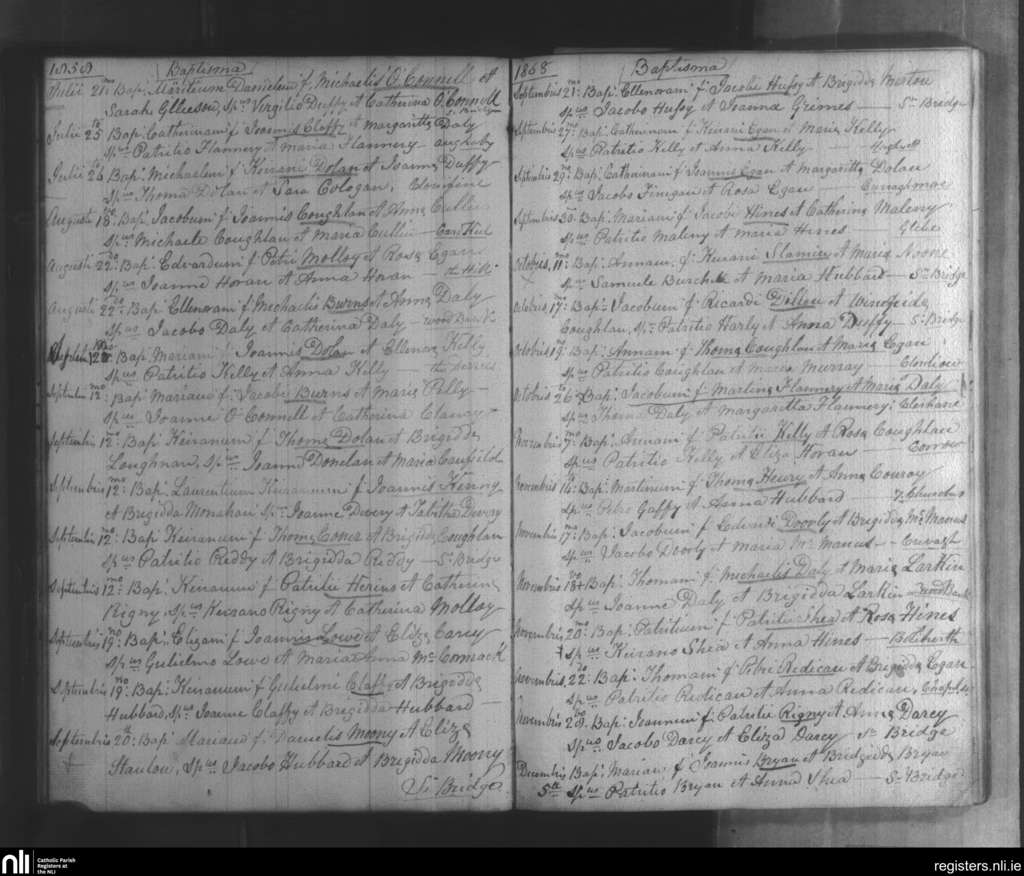 1858 Baptisma
Julii 21 Bap: Danielem f. Michaelis O'Connell et
Sarah Gleeson, Sp: Virgilio Duffy et Catherina O'Connell
St. Bridge
Julii 25 Bap: Catharinam f. Joannis Claffy et Margaritta Daly
Spus Patritio Flannery et Maria Flannery
Julii 26 Bap: Michaelem f. Keirani Dolan et Joanna Duffy
Spus Thoma Dolan et Sara Cologan,
Augusti 18: Bap: Jacobum f. Joannis Coughlan et Anna Cullin
Spus Michaele Coughlan et Maria Cullin
Augusti 22: Bap: Edvardum f. Petri Molloy et Rosa Egan
Spus Joanne Horan et Anna Horan — the Hill
Augusti 22: Bap: Ellenoram f. Michaelis Burns et Anna Daly
Spus Jacobo Daly et Catherina Daly
12: Bap: Mariam f. Joannis Dolan et Ellena Kelly
Spus Patritio Kelly et Anna Kelly
Septembris 12: Bap: Mariam f. Jacobi Burns et Maria Pilly
Spus Joanne O'Connell et Catherina
Septembris 12: Bap: Keiranum f. Thoma Dolan et Brigidda
Loughnan, Spus Joanne Donolan et Maria Caufield
Septembris 12: Bap: Laurentium Keiranum f. Joannis Kenny
et Brigidda Monahan Sp: Joanne Devery et Tabitha Devery
Septembris 12: Bap: Keiranum f. Thoma et Brigidda Coughlan
Spus Patritio Reddy et Brigidda Reddy St. Bridge
Septembris 12: Bap: Keiranum f. Patritii et Catherina
Rigny, Spus Keirano Rigny et Catherina Molloy
Septembris 19: Bap: Elizam f. Joannis Lowe et Eliza Carey
Spus Gulielmo Lowe et Maria Anna McCormack
Septembris 19: Bap: Keiranum f. Gulielmi Claffy et Brigidda
Hubbard, Spus Joanne Claffy et Brigidda Hubbard —
Septembris 20: Bap: Mariam f. Danielis Moony et Eliza
Hanlon, Spus Jacobo Hubbard et Brigidda Moony
St. Bridge
1858 Baptisma
Septembris 21: Bap: Ellenoram f. Jacobi Husoy et Brigidda
Spus Jacobo Husoy et Joanna Grimes — St. Bridge
Septembris 27: Bap: Catherinam f. Keirani Egan et Maria Kelly
Spus Patritio Kelly et Anna Kelly —
Septembris 29: Bap: Catharinam f. Joannis Egan et Margaritta Dolan
Spus Jacobo Finegan et Rosa Egan —
Septembris 30: Bap: Mariam f. Jacobi Hines et Catherina Maleny
Spus Patritio Maleny et Maria Hines — Glebe
Octobris, 11: Bap: Annam f. Keirani Slamin et Maria Noone
Spus Samuele Burchell et Maria Hubbard — St. Bridge
Octobris, 17: Bap: Jacobum f. Ricardi Dillon et Winefrida
Coughlan, Sp: Patritio Harly et Anna Duffy — St. Bridge
Octobris 19: Bap: Annam f. Thoma Coughlan et Maria Egan
Spus Patritio Coughlan et Maria Murray —
Octobris 26: Bap: Jacobum f. Martini Flannery et Maria Daly
Spus Thoma Daly et Margaritta Flannery:
Novembris 7: Bap: Annam f. Patritii Kelly et Rosa Coughlan
Spus Patritio Kelly et Eliza Horan —
Novembris 14: Bap: Martinum f. Thoma Henry et Anna Conroy
Spus Petro Gaffy et Anna Hubbard 7 Churches
Novembris 17: Bap: Jacobum f. Edvardi Doorly et Brigidda McManus
Spus Jacobo Doorly et Maria McManus —
Novembris 18: Bap: Thomam f. Michaelis Daly et Maria Larkin
Spus Joanne Daly et Brigidda Larkin —
Novembris 20: Bap: Patritium f. Patritii Shea et Rosa Hines
Spus Keirano Shea et Anna Hines —
Novembris 22: Bap: Thomam f. Petri Redican et Brigidda Egan
Spus Patritio Redican et Anna Redican, Chapel
Novembris 28: Bap: Joannem f. Patritii Rigny et Anna Darcy
Spus Jacobo Darcy et Eliza Darcy St. Bridge
Decembris Bap: Mariam f. Joannis Bryan et Bridgida Bryan
5th Spus Patritio Bryan et Anna Shea — St. Bridge
nli Catholic Parish
Registers at
the NLI
registers.nli.ie